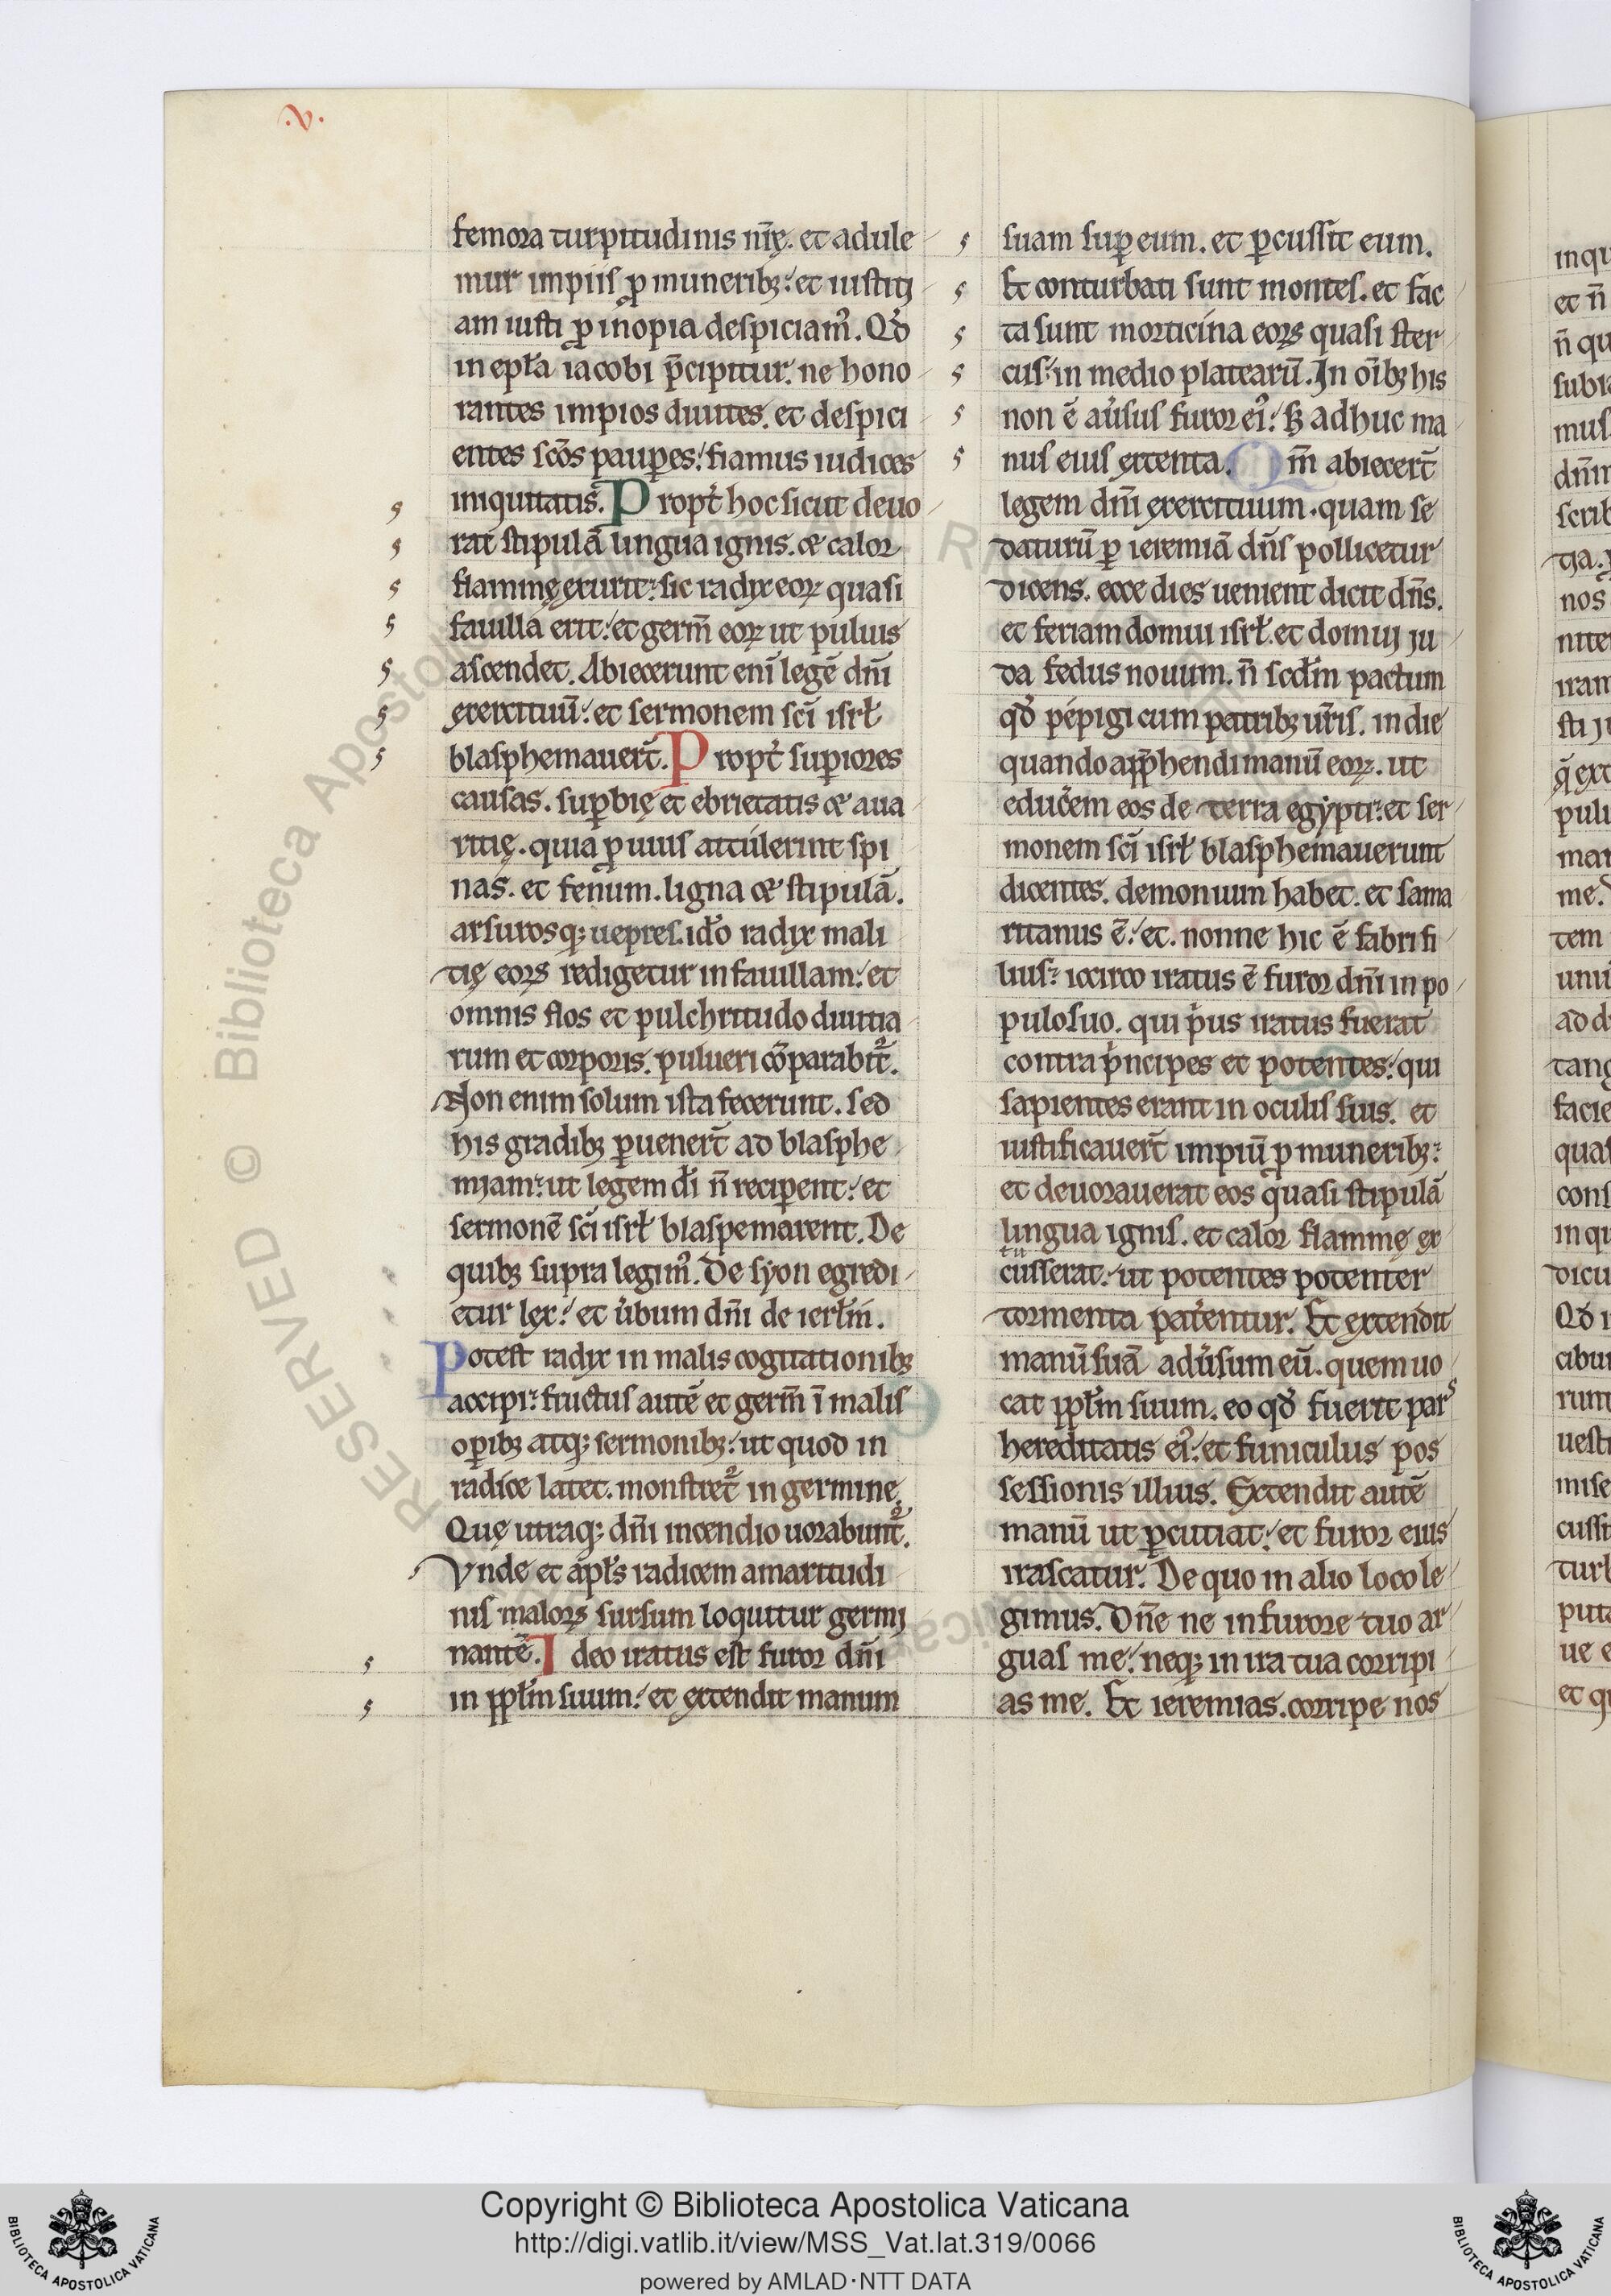 .v.
femora turpitudinis nr̄ę. et adule
mur impiis ꝓ munerib;: et iustitij
am iusti ꝓ inopia despiciam᷒. Qd̓
in epl̄a iacobi p̄cipitur. ne hono
rantes impios diuites. et despici
entes sc̄os pauꝑes: fiamus iudices
iniquitatis. Propt̓ hoc sicut deuo
rat stipulā lingua ignis. & calor
flammę exurit: sic radix eoꝝ quasi
fauilla erit: et germ̄ eoꝝ ut puluis
ascendet. Abiecerunt eni̅ legē dn̄i
exercituū: et sermonem sc̄i isrł
blasphemauer̄t. Propt̓ suꝑiores
causas. suꝑbię et ebrietatis & aua
ritię. quia ꝓ uuis attulerint spi
nas. et fenum. ligna & stipulā.
arsurosq; uepres. id̓o radix mali
tię eoꝝ redigetur in fauillam: et
omnis flos et pulchritudo diuitia
rum et corporis. pulueri cōparabit᷑.
Non enim solum ista fecerunt. sed
his gradib; ꝑuener̄t ad blasphe
miam: ut legem dī n̄ reciꝑent: et
sermonē sc̄i isrł blaspemarent. De
quib; supra legim᷒. De syon egredi
etur lex: et u̓bum dn̄i de ierłm.
Potest radix in malis cogitationib;
accipi: fructus autē et germ̄ ī malis
oꝑib; atq; sermonib;: ut quod in
radice latet. monstret᷑ in germine.
Quę utraq; dn̄i incendio uorabunt᷑.
Vnde et apłs radicem amaritudi
nis maloꝝ sursum loquitur germi
nantē. Ideo iratus est furor dn̄i
in ppłm suum: et extendit manum
suam suꝑ eum. et ꝑcussit eum.
Et conturbati sunt montes. et fac
ta sunt morticina eoꝝ quasi ster
cus: in medio platearū. In oīb; his
non ē au̓sus furor ei᷒: sꝫ adhuc ma
nus eius extenta. Qm̄ abiecer̄t
legem dn̄i exercituum. quam se
daturū ꝑ ieremiā dn̄s pollicetur
dicens. ecce dies uenient dicit dn̄s.
et feriam domui isrł. et domui ju
da fedus nouum. n̄ scd̄m pactum
qd̓ pepigi cum patrib; ur̄is. in die
quando app̄hendi manū eoꝝ. ut
educ̓em eos de terra egypti: et ser
monem sc̄i isrł blasphemauerunt
dicentes. demonium habet. et sama
ritanus ē: et. nonne hic ē fabri fi
lius: iccirco iratus ē furor dn̄i in po
pulo suo. qui pͥus iratus fuerat
contra pͥncipes et potentes: qui
sapientes erant in oculis suis. et
iustificauer̄t impiū ꝓ munerib;:
et deuorauerat eos quasi stipulā
lingua ignis. et calor flammę ex
tu
cusserat: ut potentes potenter
tormenta pat̓entur. Et extendit
manū suā adu̓sum eū. quem uo
cat ppłm suum. eo qd̓ fuerit pars
hereditatis ei᷒: et funiculus pos
sessionis illius. Extendit autē
manū ut ꝑcutiat: et furor eius
irascatur. De quo in alio loco le
gimus. Dn̄e ne in furore tuo ar
guas me: neq; in ira tua corripi
as me. Et ieremias. corripe nos
Copyright © Biblioteca Apostolica Vaticana
http://digi.vatlib.it/view/MSS_Vat.lat.319/0066
powered by AMLAD·NTT DATA